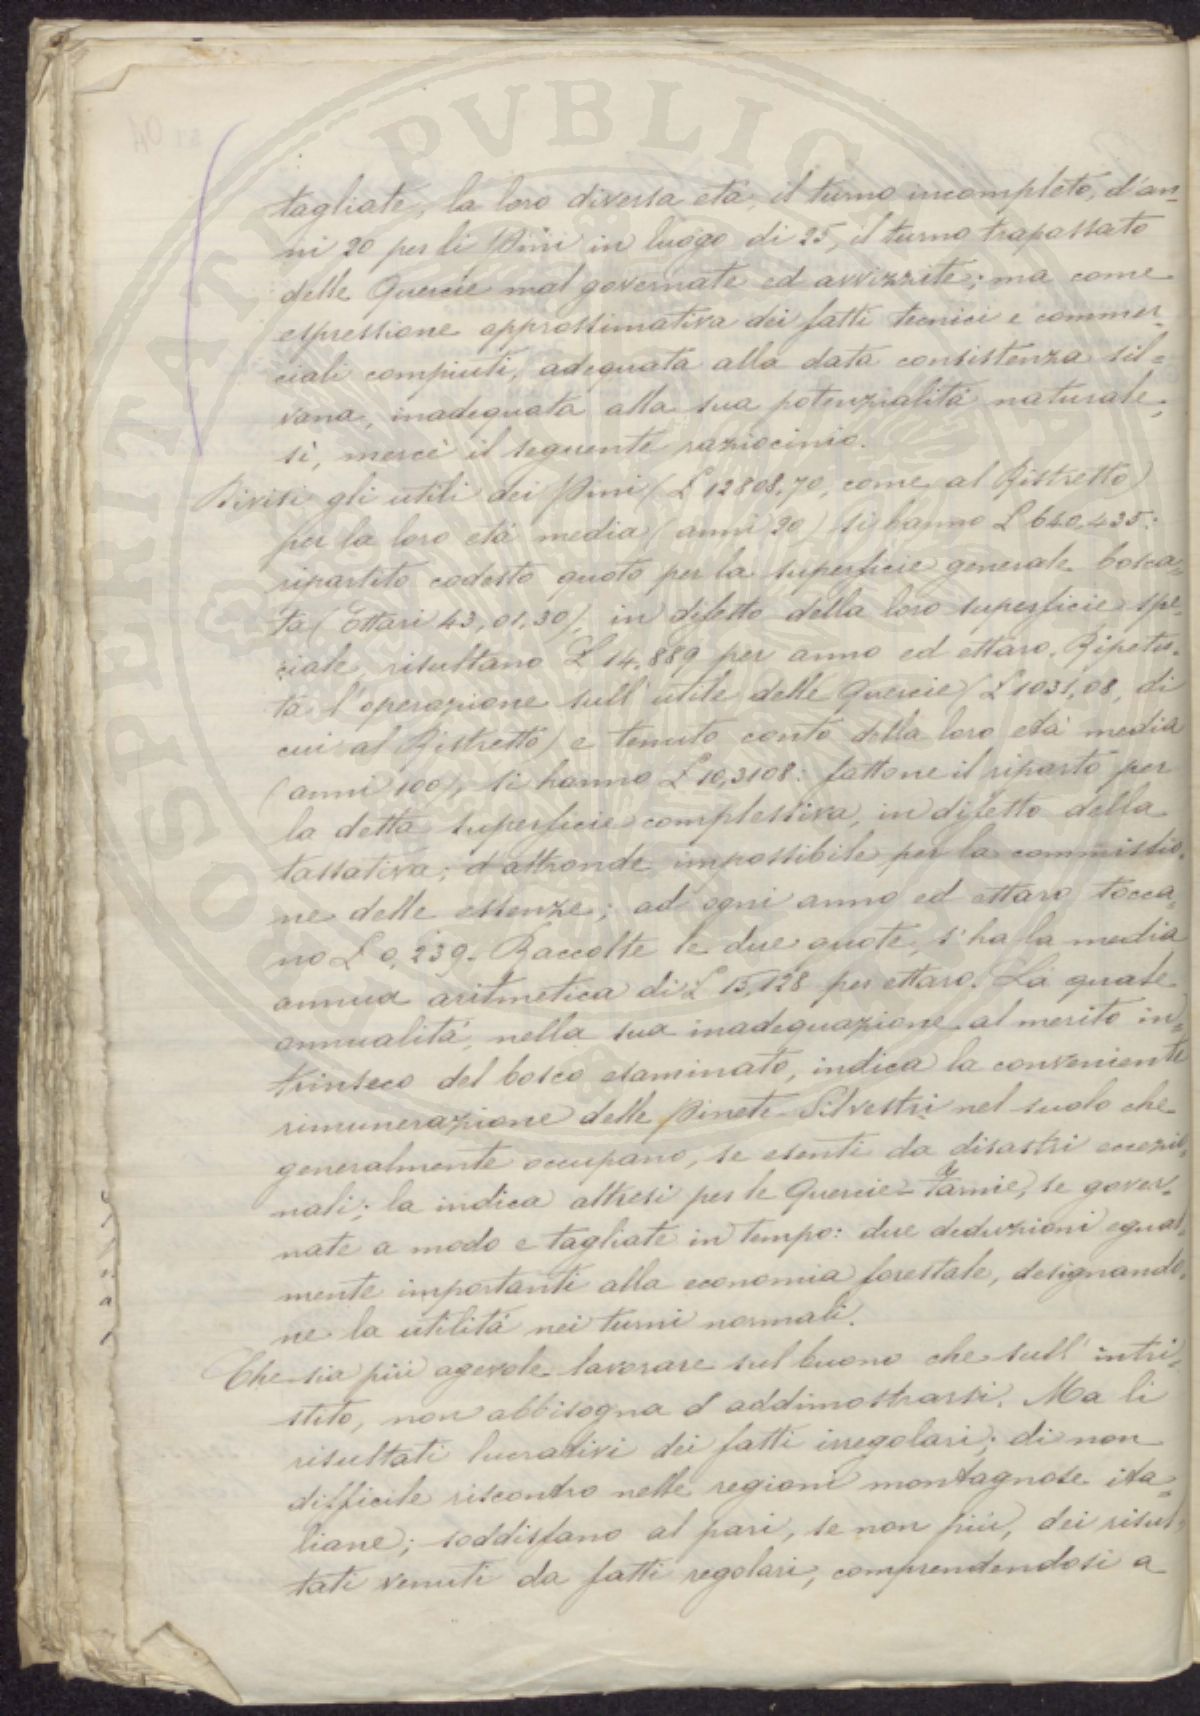 tagliate, la loro diversa età, il turno incompleto, d'an-
ni 20 per li Pini in luogo di 25, il turno trapassato
delle Quercie mal governate ed avvizzite; ma come
espressione approssimativa dei fatti tecnici e commer-
ciali compiuti, adequata alla data consistenza sil-
vana, inadequata alla sua potenzialità naturale;
sì, mercè il seguente raziocinio.
Divisi gli utili dei Pini (£ 12808,70, come al Ristretto)
per la loro età media (anni 20) si hanno £ 640,435:
ripartito codesto quoto per la superficie generale bosca-
ta (Ettari 43,01,30), in difetto della loro superficie spe-
ciale, risultano £ 14,889 per anno ed ettaro. Ripetu-
ta l'operazione sull'utile delle Quercie (£ 1031,08, di
cui al Ristretto) e tenuto conto della loro età media
(anni 100), si hanno £ 10,3108: fattone il riparto per
la detta superficie complessiva, in difetto della
tassativa; d'altronde impossibile per la commistio-
ne delle essenze; ad ogni anno ed ettaro tocca-
no £ 0,239. Raccolte le due quote, s'ha la media
annua aritmetica di £ 15,128 per ettaro. La quale
annualità, nella sua inadeguazione al merito in-
trinseco del bosco esaminato, indica la conveniente
rimunerazione delle Pinete-Silvestri nel suolo che
generalmente occupano, se esenti da disastri eccezio-
nali; la indica altresì per le Quercie-Farnie, se gover-
nate a modo e tagliate in tempo: due deduzioni egual-
mente importanti alla economia forestale, designando-
ne la utilità nei turni normali.
Che sia più agevole lavorare sul buono che sull'intri-
stito, non abbisogna d'addimostrarsi. Ma li
risultati lucrativi dei fatti irregolari; di non
difficile riscontro nelle regioni montagnose ita-
liane; soddisfano al pari, se non più, dei risul-
tati venuti da fatti regolari, comprendendosi a
PROSPERITATI PVBLICAE